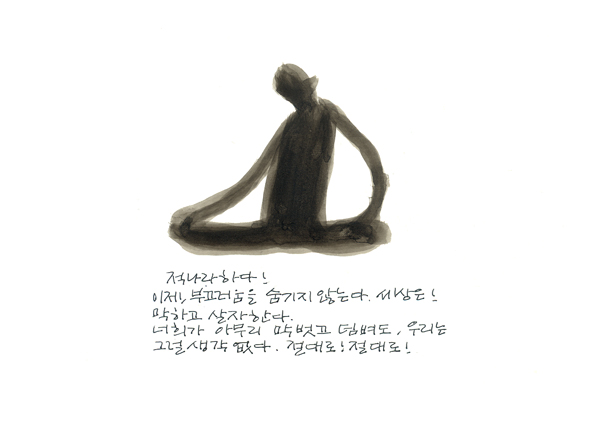 적나라하다!
이제! 부끄러움을 숨기지 않는다. 세상은!
막하고 살자한다.
너희가 아무리 막벗고 덤벼도, 우리는
그럴생각 없다. 절대로! 절대로!